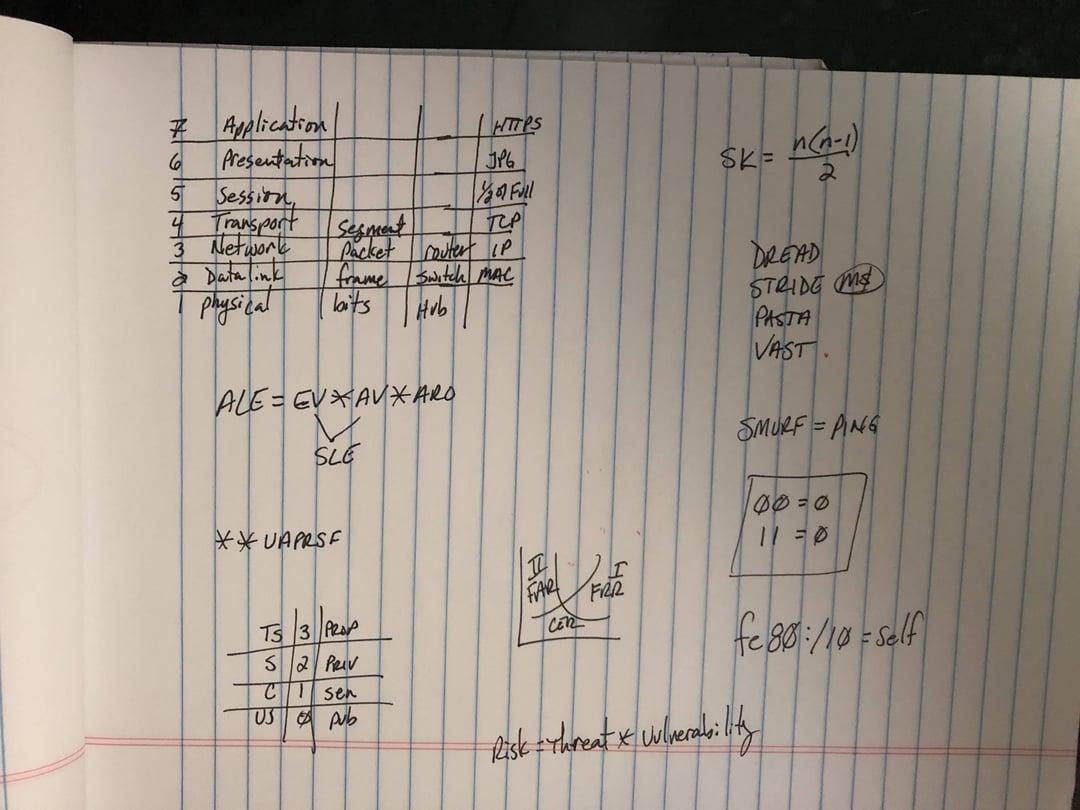 7 Application HTTPS
6 Presentation JPG
5 Session 1/2 or Full
4 Transport Segment TCP
3 Network Packet router IP
2 Data link frame Switch MAC
1 physical bits Hub
SK = n(n-1)
2
DREAD
STRIDE MS
PASTA
VAST
ALE = EV * AV * ARO
SLE
SMURF = PING
00 = 0
11 = 0
** UAPRSF
II I
FAR FRR
CER
TS 3 PROP
S 2 PRIV
C 1 Sen
US 0 Pub
fe80:/10 = self
Risk = Threat * Vulnerability